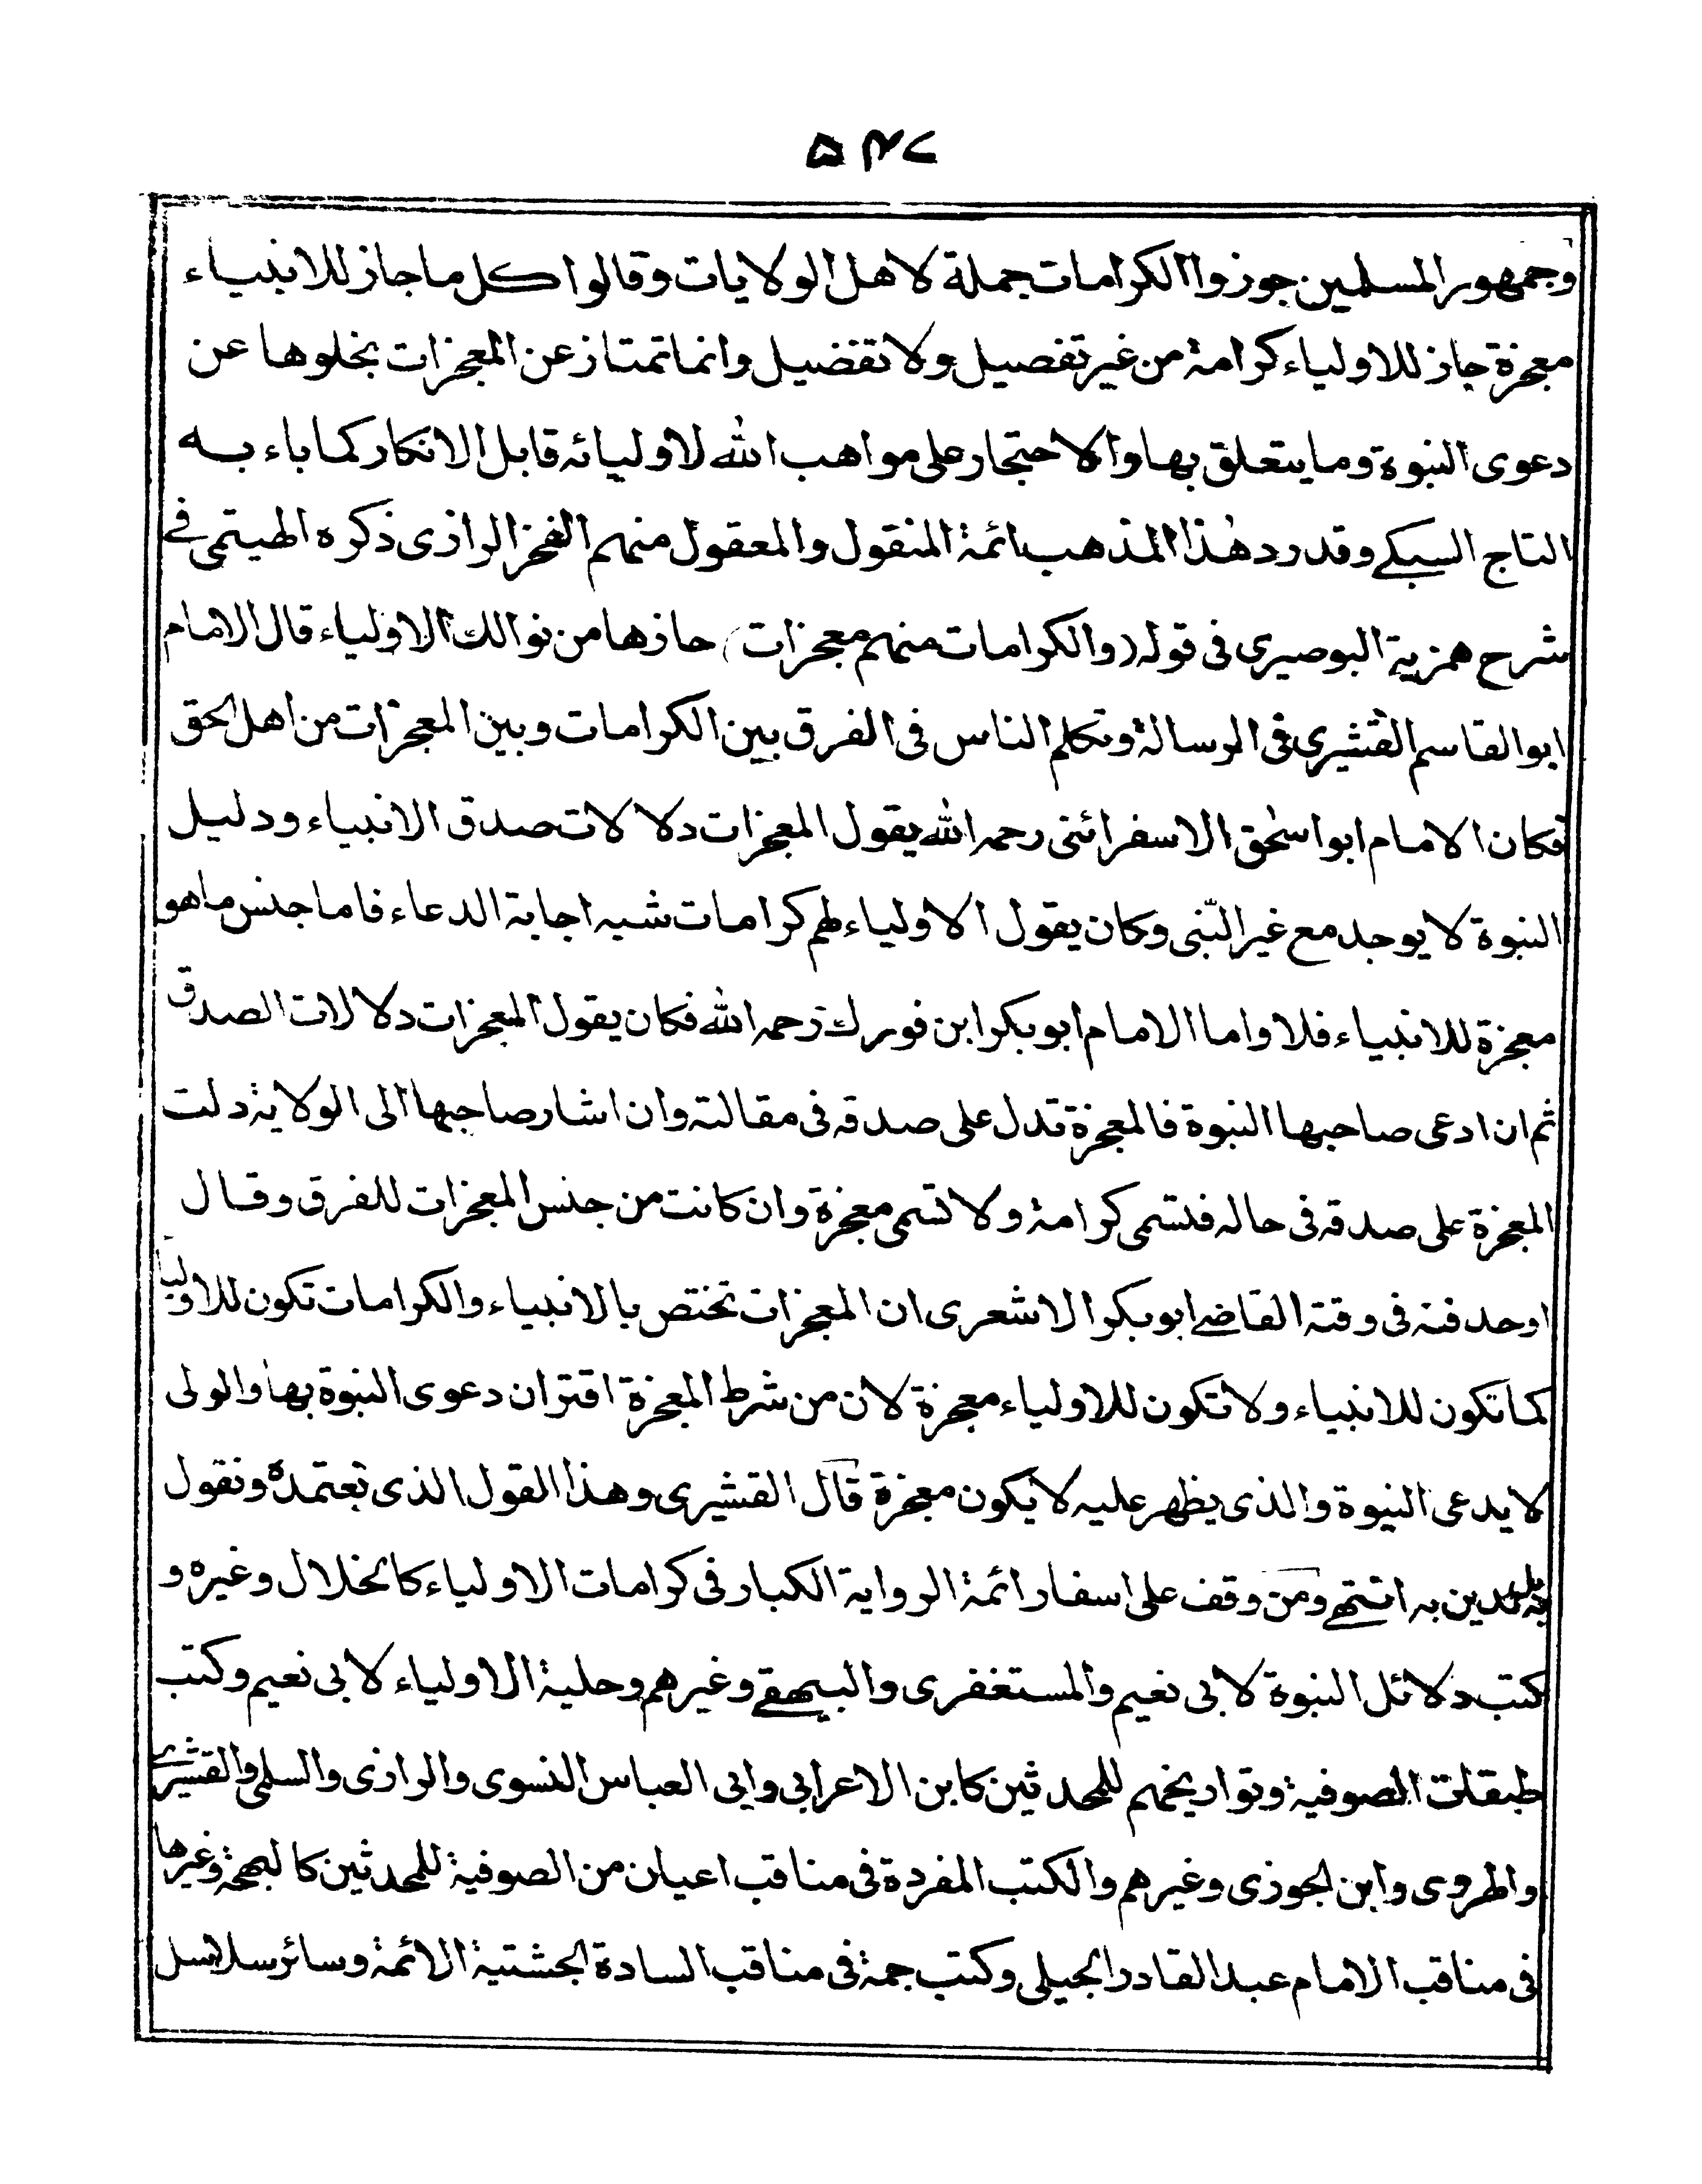 ۵۴۷
وجمهور المسلمين جوزوا الكرامات جملة لاهل الولايات وقالوا كل ما جاز للانبياء
معجزة جاز للاولياء كرامة من غير تفصيل ولا تفضيل وانما تمتاز عن المعجزات بخلوها عن
دعوى النبوة وما يتعلق بها والاحتجار على مواهب الله لاوليائه قابل الانكار كما باء به
التاج السبكے وقد رد هٰذا المذهب ائمة المنقول والمعقول منهم الفخر الرازى ذكره الهيتمى فے
شرح همزية البوصيرى فى قوله (والكرامات منهم معجزات) حازها من نوالك الاولياء قال الامام
ابو القاسم القشيرى فى الرسالة وتكلم الناس فى الفرق بين الكرامات وبين المعجزات من اهل الحق
فكان الامام ابو اسحٰق الاسفرائنى رحمه الله يقول المعجزات دلالات صدق الانبياء ودليل
النبوة لا يوجد مع غير النّبى وكان يقول الاولياء لهم كرامات شبه اجابة الدعاء فاما جنس ما هو
معجزة للانبياء فلا واما الامام ابو بكر ابن فورك رحمه الله فكان يقول المعجزات دلالات الصدق
ثم ان ادعى صاحبها النبوة فالمعجزة تدل على صدقه فى مقالته وان اشار صاحبها الى الولاية دلت
المعجزة على صدقه فى حاله فتسمى كرامة ولا تسمى معجزة وان كانت من جنس المعجزات للفرق وقال
اوحد فنه فى وقته القاضے ابو بكر الاشعرى ان المعجزات تختص بالانبياء والكرامات تكون للاولياء
كما تكون للانبياء ولا تكون للاولياء معجزة لان من شرط المعجزة اقتران دعوى النبوة بها والولى
لا يدعى النبوة والذى يظهر عليه لا يكون معجزة قال القشيرى وهذا القول الذى نعتمده ونقول
به بل ندين به انتهے ومن وقف على اسفار ائمة الرواية الكبار فى كرامات الاولياء كالخلال وغيره و
كتب دلائل النبوة لابى نعيم والمستغفرى والبيهقے وغيرهم وحلية الاولياء لابى نعيم وكتب
طبقات الصوفية وتواريخهم للمحدثين كابن الاعرابى وابى العباس النسوى والرازى والسلمى والقشيرے
والهروى وابن الجوزى وغيرهم والكتب المفردة فى مناقب اعيان من الصوفية للمحدثين كالبهجة وغيرها
فى مناقب الامام عبد القادر الجيلى وكتب جمة فى مناقب السادة الجشتية الائمة وسائر سلاسل